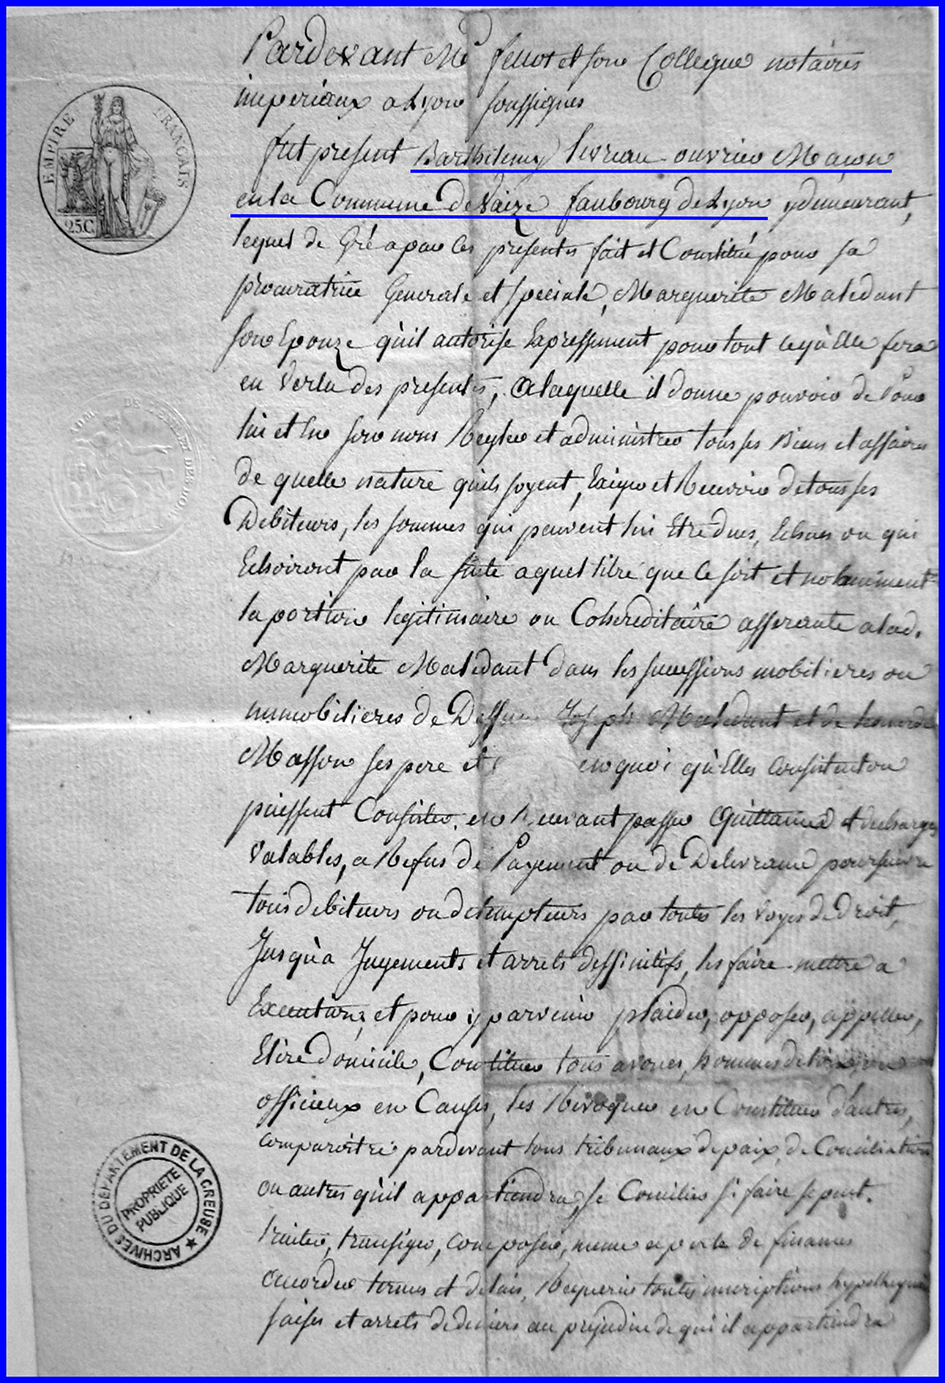 Pardevant Me fellot et son Collegue notaires
imperiaux a Lyon soussignes
fut present Barthélemy ouvrier Maçon
en la Commune de Vaize faubourg de Lyon y demeurant,
lequel de Gré a par ces presentes fait et Constitué pour sa
procuratrice Generale et speciale, Marguerite Maledant
son Epouze qu'il autorise Expressement pour tout ce qu'Elle fera
en Vertu des presentes, a laquelle il donne pouvoir de Pour
lui et En son nom Regler et administrer tous ses Biens et affaires
de quelle nature quils soyent, Exiger et Recevoir de tous ses
Debiteurs, les sommes qui peuvent lui Etre dues, Echues ou qui
Echoiront par la suite a quel titre que ce soit et notamment
la portion legitimaire ou Cohereditaire afferante a lad.
Marguerite Maledant dans les successions mobilieres ou
immobilieres de Deffun Joseph Maledant et de
Masson ses pere et en quoi qu'Elles consistent ou
puissent Consister, en Recevant passer Quittances et decharges
Valables, a Refus de Payement ou de Delivrance poursuivre
tous debiteurs ou detempteurs par toutes les Voyes de Droit,
Jusqu'a Jugements et arrets deffinitifs, les faire mettre a
Execution, et pour y parvenir plaider, opposer, appeller,
Elire domicile, Constituer tous avoués, hommes de loi ou
officieux en Causes, les Revoquer en Constituer d'autres,
comparoitre pardevant tous tribunaux de paix, de Conciliation
ou autres qu'il appartiendra, se Concilier si faire se peut.
traiter, transiger, composer, meme a perte de finances
accorder termes et delais, Requerir toutes inscriptions hypothequaires
saisies et arrets de deniers au prejudice de qui il appartiendra
EMPIRE FRANÇAIS
25C.
ARCHIVES DU DÉPARTEMENT DE LA CREUSE
PROPRIÉTÉ
PUBLIQUE